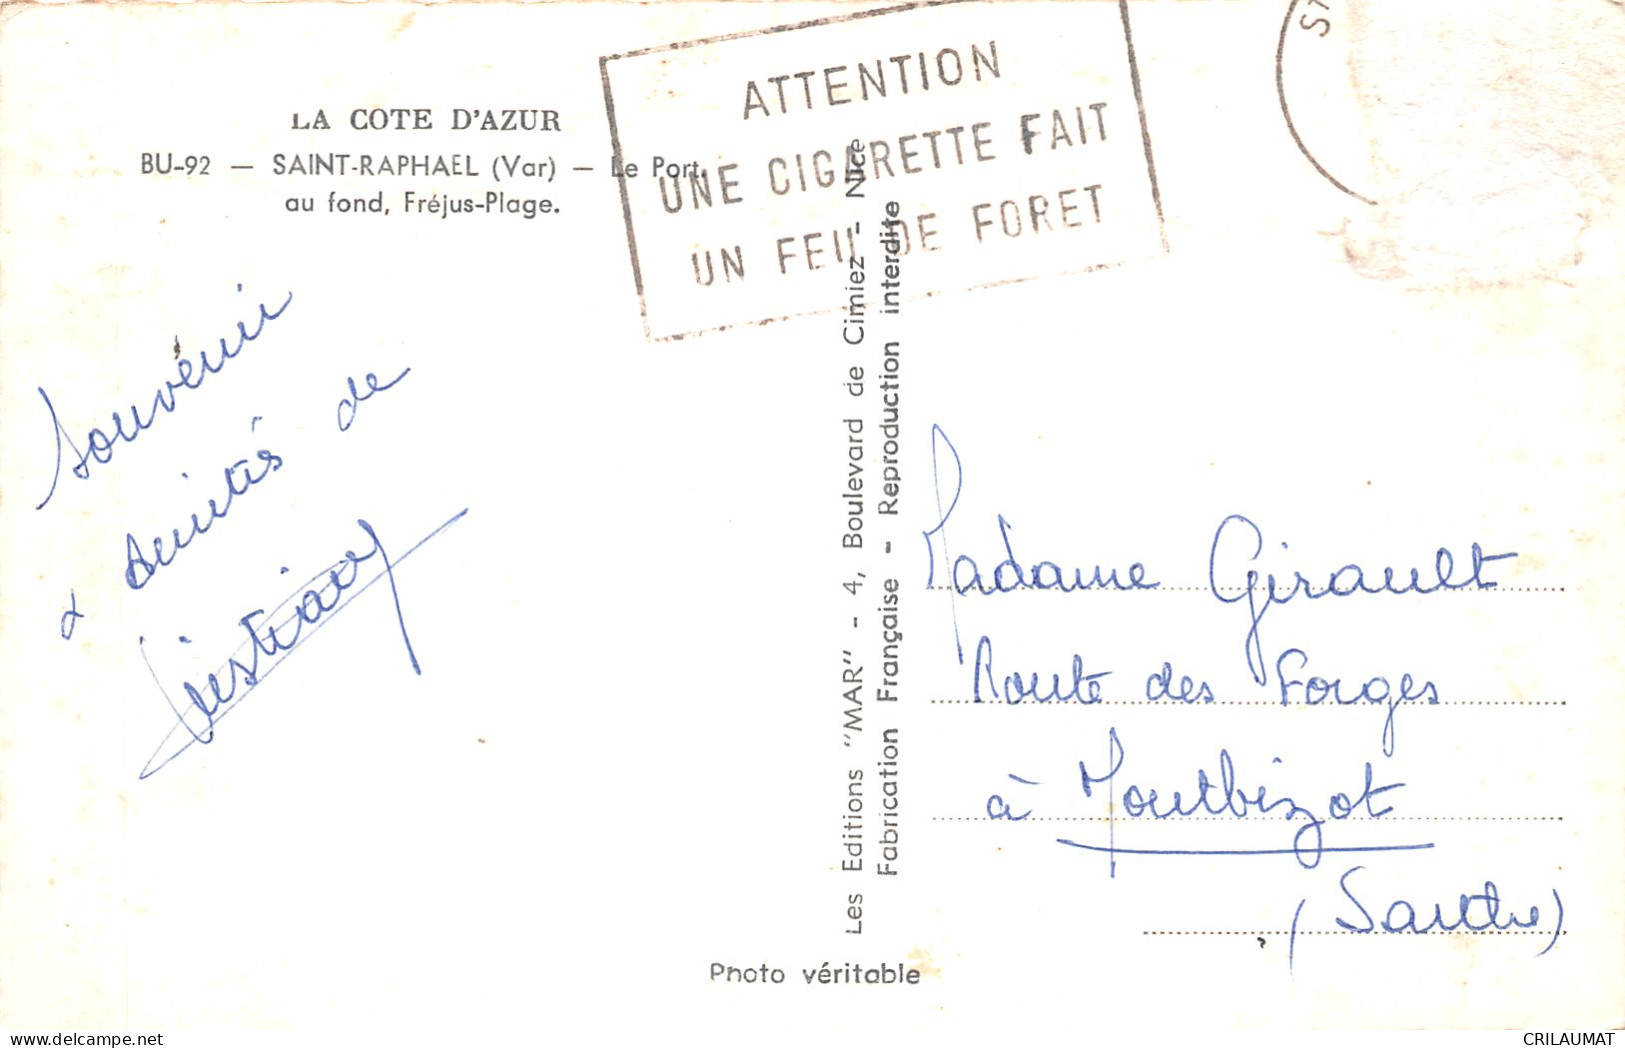 LA COTE D'AZUR
BU-92 — SAINT-RAPHAEL (Var) — Le Port.
au fond, Fréjus-Plage.
ATTENTION
UNE CIGARETTE FAIT
UN FEU DE FORET
Souvenir
& Amitiés de
Les Editions "MAR" - 4, Boulevard de Cimiez - Nice
Fabrication Française - Reproduction interdite
Madame Girault
Route des Forges
à Montbizot
(Sarthe)
Photo véritable
CRILAUMAT